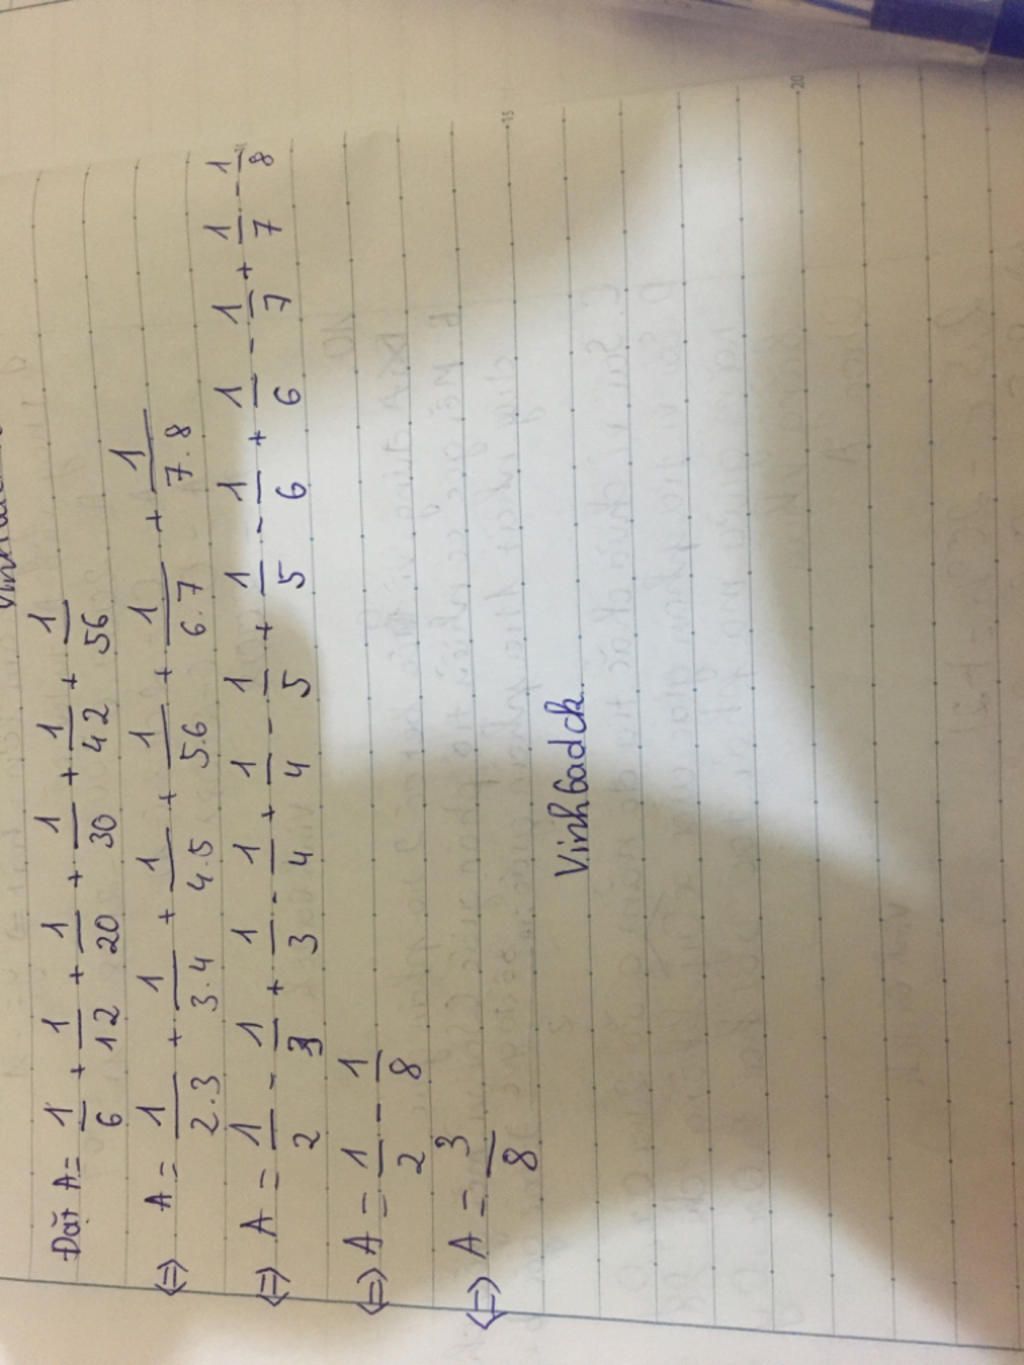 Đặt A = 1/6 + 1/12 + 1/20 + 1/30 + 1/42 + 1/56
⇔ A = 1/2.3 + 1/3.4 + 1/4.5 + 1/5.6 + 1/6.7 + 1/7.8
⇔ A = 1/2 - 1/3 + 1/3 - 1/4 + 1/4 - 1/5 + 1/5 - 1/6 + 1/6 - 1/7 + 1/7 - 1/8
⇔ A = 1/2 - 1/8
⇔ A = 3/8
Vinhbadck
15
20